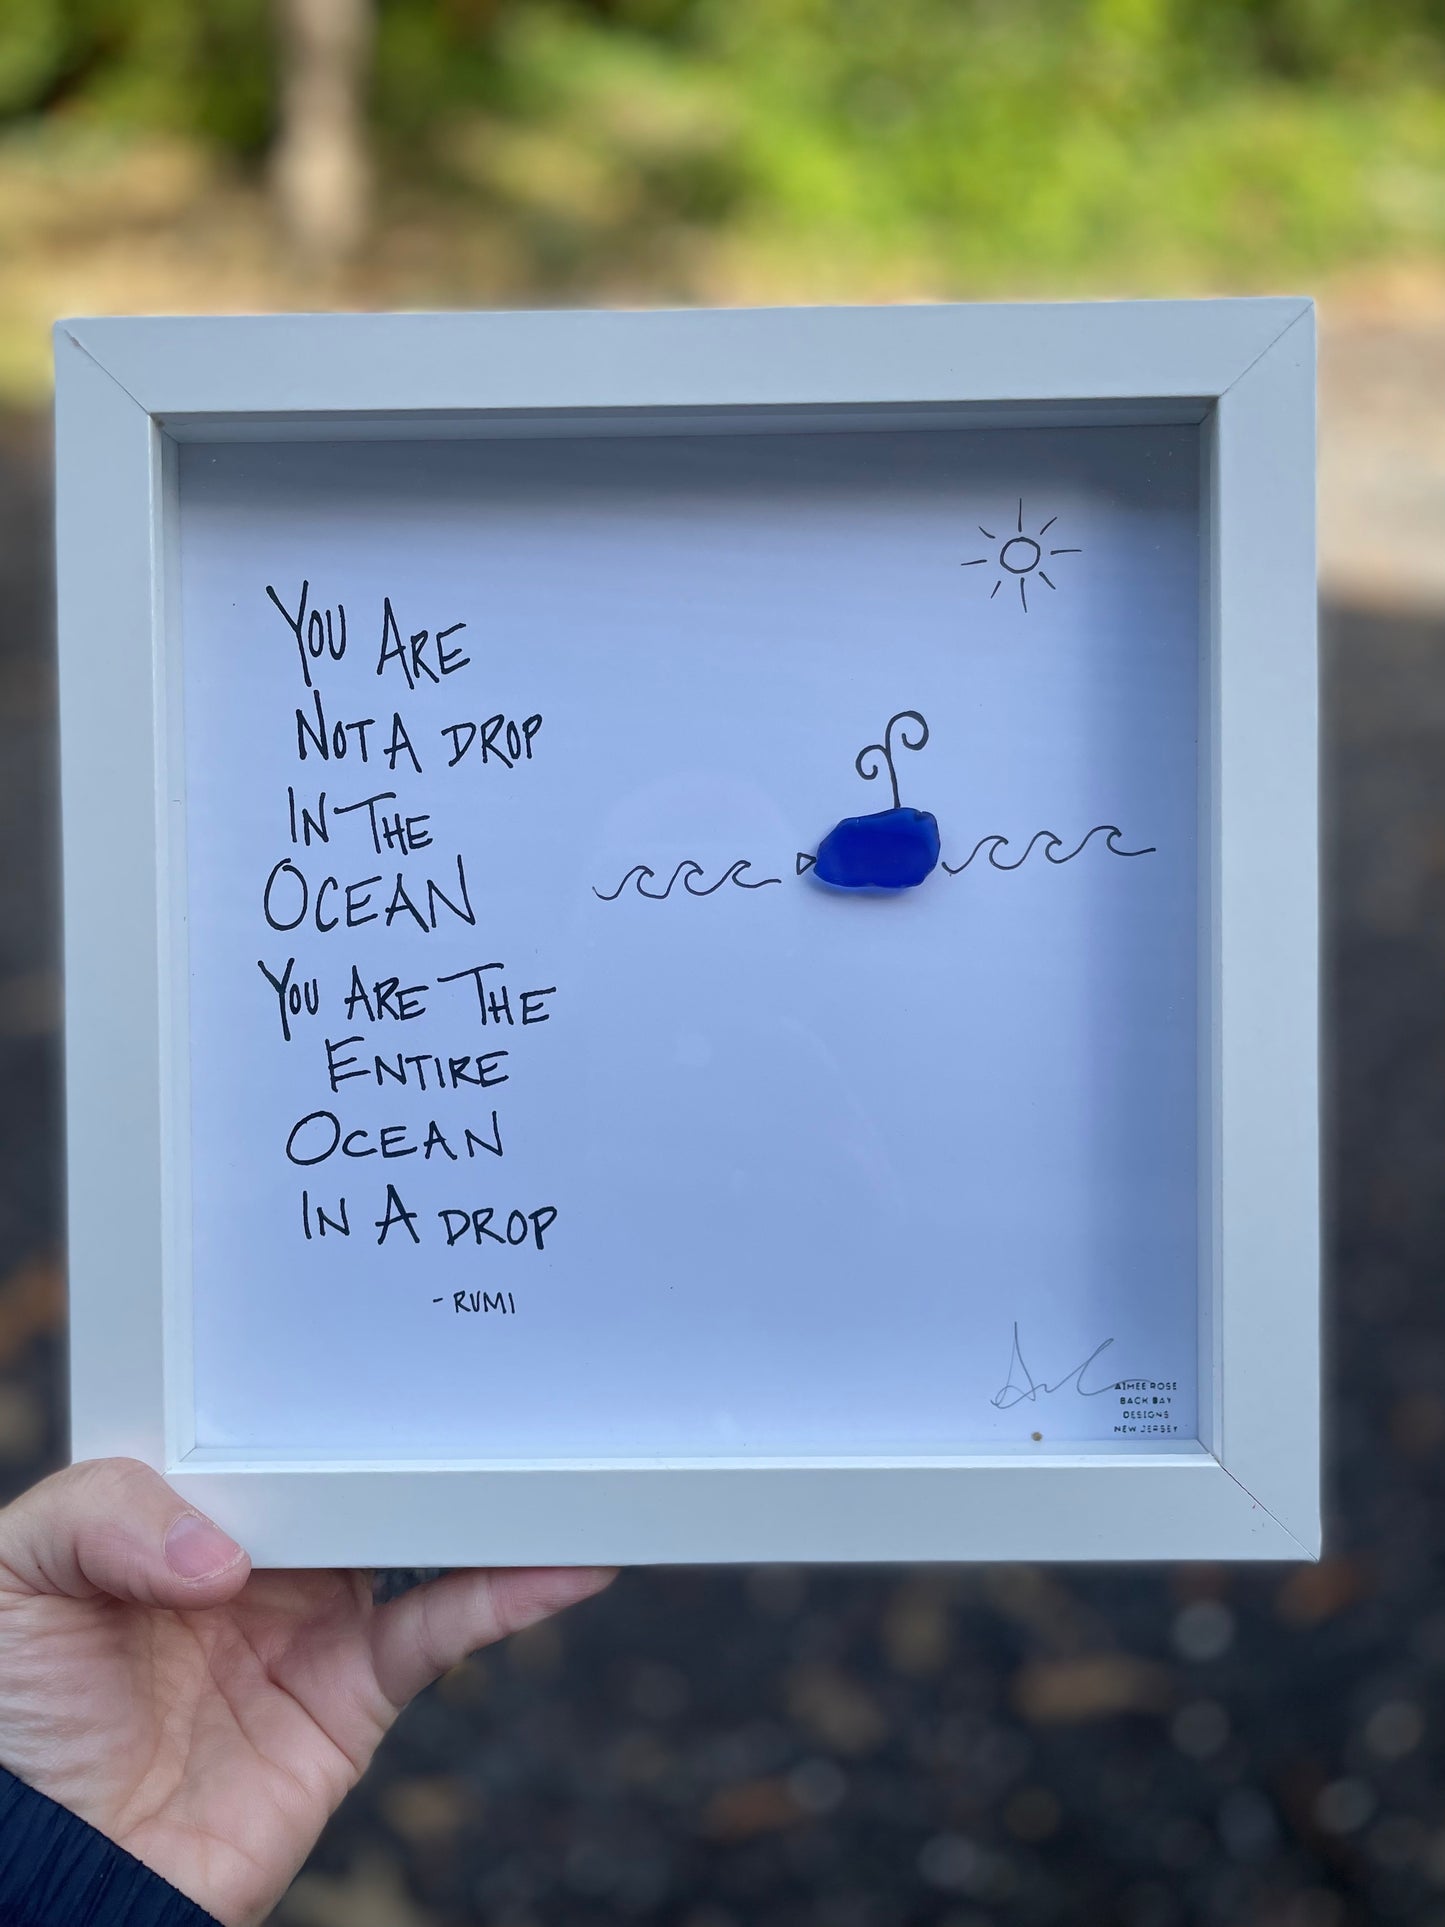 You Are
Not A Drop
In The
Ocean
You Are The
Entire
Ocean
In A Drop
- Rumi
AIMEE ROSE
BACK BAY
DESIGNS
NEW JERSEY